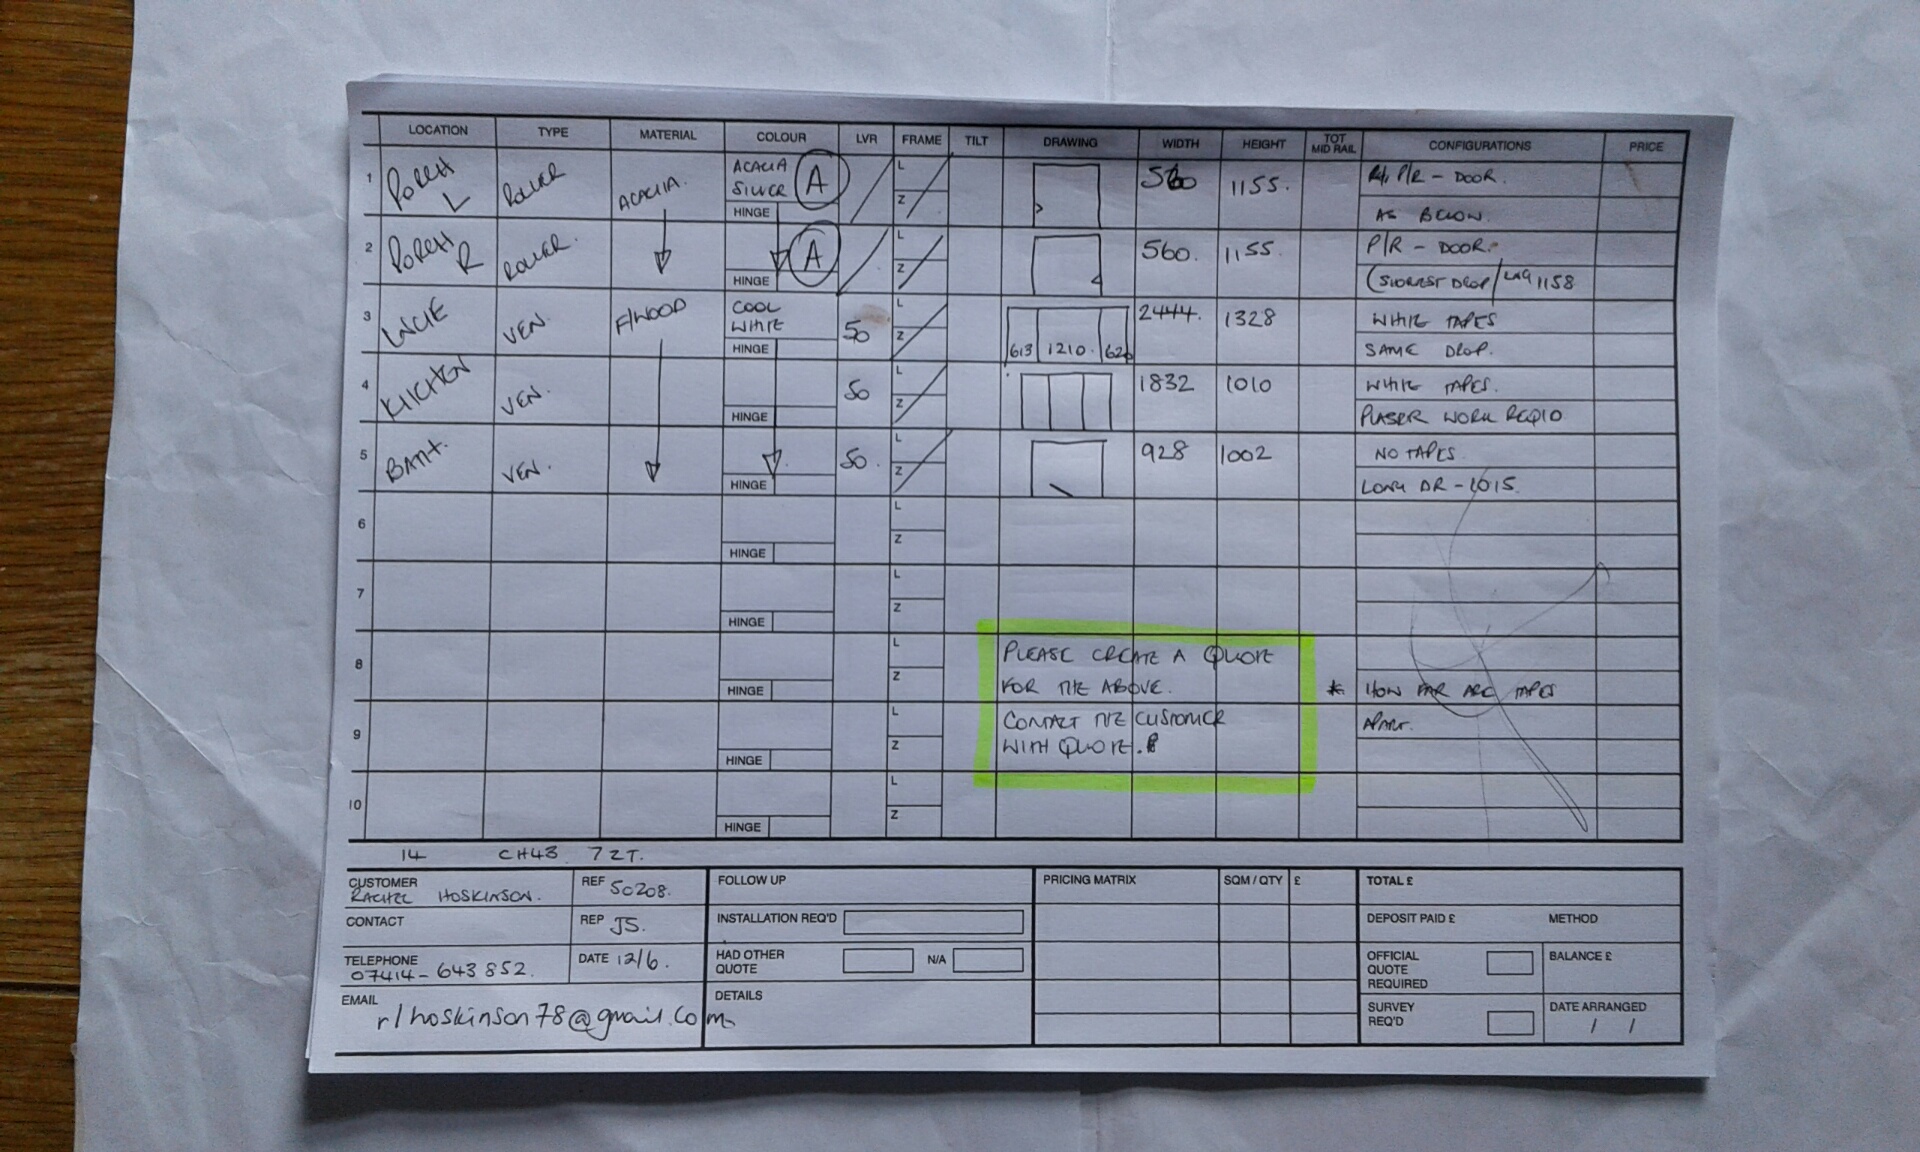 LOCATION TYPE MATERIAL COLOUR LVR FRAME TILT DRAWING WIDTH HEIGHT TOT MID RAIL CONFIGURATIONS PRICE
1 PORCH L ROLLER ACACIA. ACACIA SILVER A HINGE L Z 560 1155. P/R - DOOR.
AS BELOW.
2 PORCH R ROLLER. A HINGE L Z 560. 1155. P/R - DOOR.
(SHORTEST DROP / LNG 1158
3 VEN. F/WOOD COOL WHITE HINGE 50 L Z 613 1210. 620 2444. 1328 WHITE TAPES
SAME DROP.
4 KITCHEN VEN. HINGE 50 L Z 1832 1010 WHITE TAPES.
PLASER WORK REQ'D
5 BATH. VEN. HINGE 50. L Z 928 1002 NO TAPES
LONG DR - 1015.
6 HINGE L Z
7 HINGE L Z
8 HINGE L Z
PLEASE CREATE A QUOTE
FOR THE ABOVE. * HOW FAR ARE TAPES
9 HINGE L Z
CONTACT THE CUSTOMER APART.
WITH QUOTE.
10 HINGE L Z
14 CH43 7ZT.
CUSTOMER RACHEL HOSKINSON. REF 50208. FOLLOW UP PRICING MATRIX SQM / QTY £ TOTAL £
CONTACT REP JS. INSTALLATION REQ'D DEPOSIT PAID £ METHOD
TELEPHONE 07414-643852. DATE 12/6. HAD OTHER QUOTE N/A OFFICIAL QUOTE REQUIRED BALANCE £
EMAIL rlhoskinson78@gmail.com DETAILS SURVEY REQ'D DATE ARRANGED / /